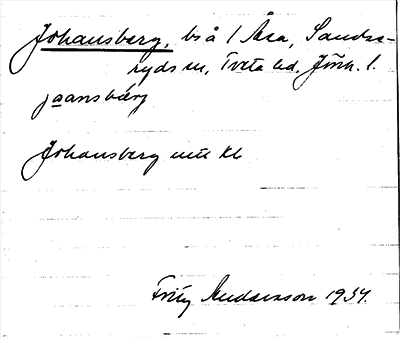 Johansberg, bs å 1 Åsa, Sandse-
ryds sn, Tveta hd, Jönk. l.
jaansbärj
Johansberg
Fritz Andersson 1934.